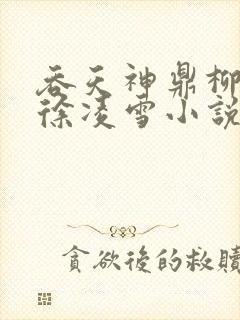 吞天神鼎柳
徐凌雪小說
貪欲後的救贖